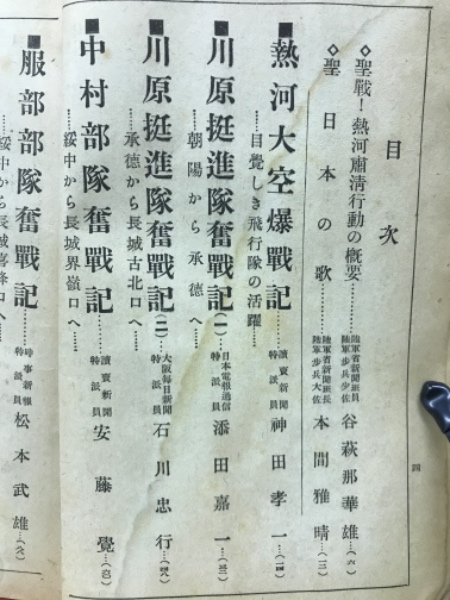 目次
◇聖戰！熱河肅清行動の概要………陸軍省新聞班員 陸軍步兵少佐 谷萩那華雄…(六)
◇聖日本の歌………陸軍省新聞班長 陸軍步兵大佐 本間雅晴…(一三)
■熱河大空爆戰記………讀賣新聞特派員 神田孝一…(一四)
……目覺しき飛行隊の活躍……
■川原挺進隊奮戰記(一)………日本電報通信特派員 添田嘉一
……朝陽から承德へ……
■川原挺進隊奮戰記(二)………大阪每日新聞特派員 石川忠行
……承德から長城古北口へ……
■中村部隊奮戰記………讀賣新聞特派員 安藤覺
……綏中から長城界嶺口へ……
■服部部隊奮戰記………時事新報特派員 松本武雄
……綏中から長城喜峰口へ……
四